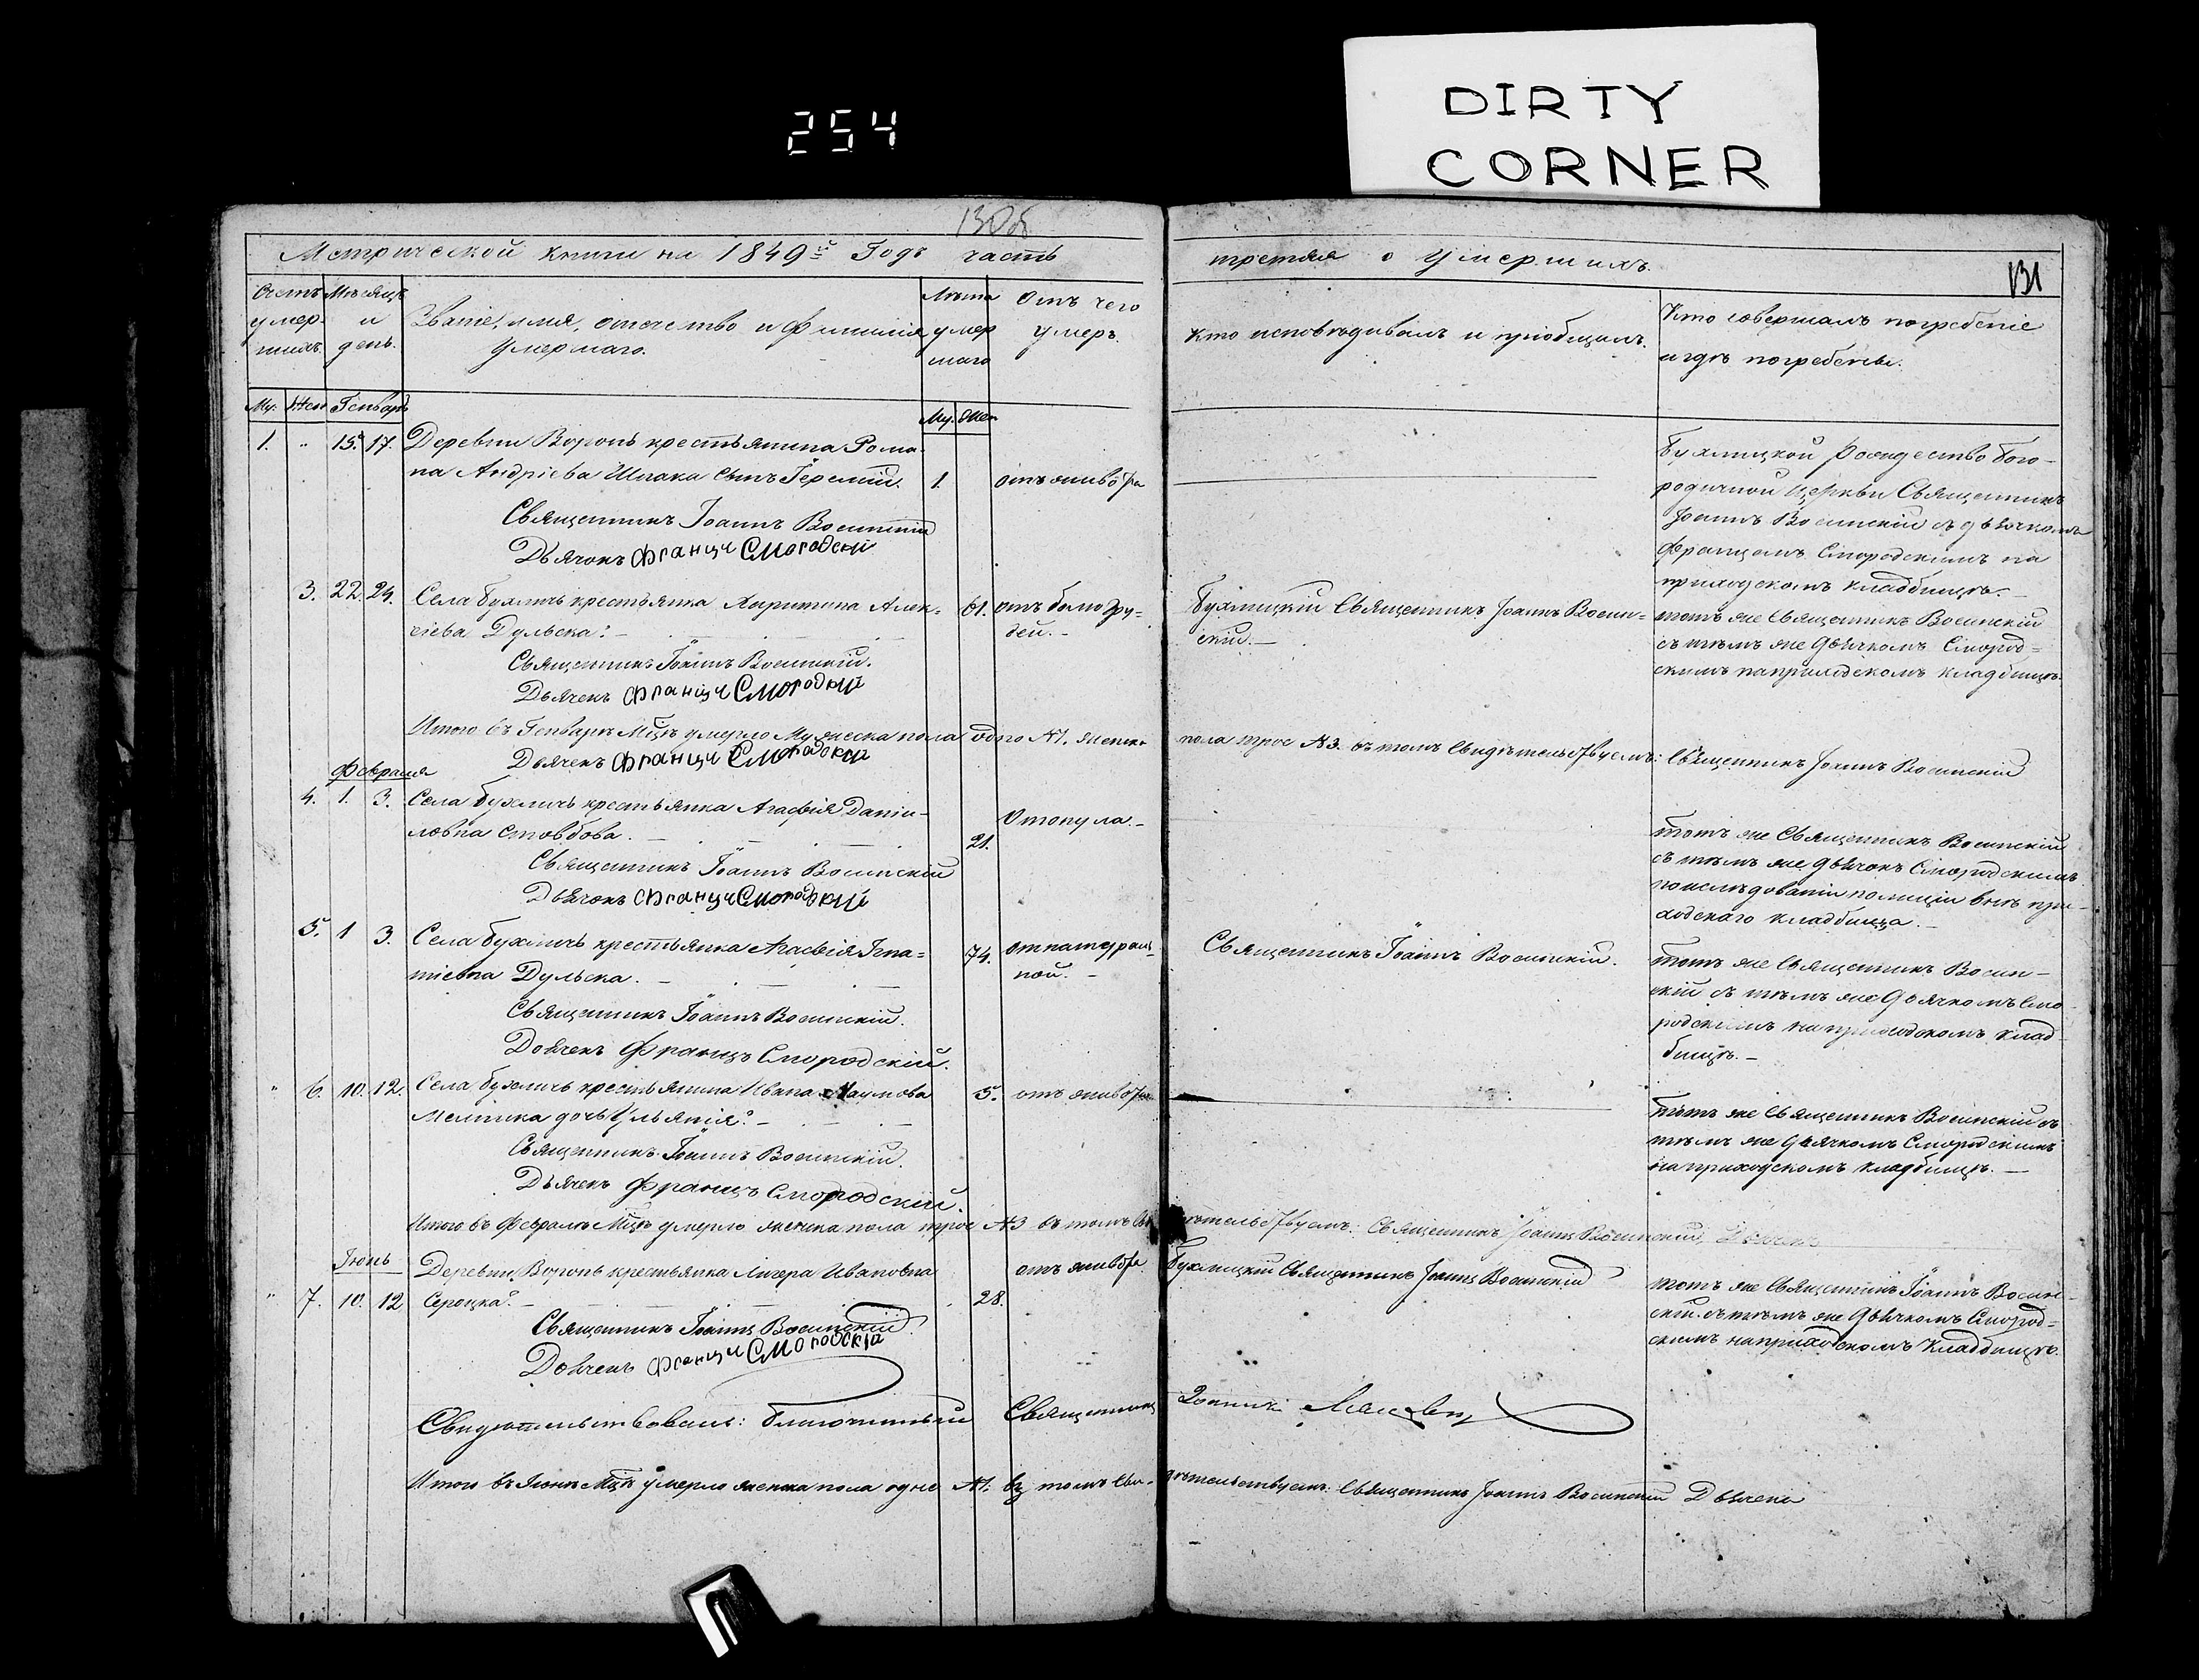 DIRTY
CORNER
254
130об
Метрической книги на 1849й Годъ часть третяя о Умершихъ.
131
Счетъ умер- шихъ.
Мѣсяцъ и день.
Званіе, имя, отечество и фамилія Умершаго.
Лѣта умер шаго
Отъ чего умеръ.
Кто исповѣдивалъ и пріобщалъ.
Кто совершалъ погребеніе
и гдѣ погребены.
Му. Жен Генварь
Му. Жен
1. " 15. 17. Деревни Воронь крестьянина Рома-
на Андріева Шпака сынъ Геремій. 1. отъ живота
Священникъ Іоаннъ Восинскій
Дьячокъ Францъ Смородскій
Бухлицкой Рождество Бого-
родичной Церкви Священникъ
Іоаннъ Восинскій съ дьячкомъ
Францомъ Смородскимъ на
приходскомъ кладбищѣ.
3. 22. 24. Села Бухличь крестьянка Харитина Алек-
сіева Дульска. 61. отъ боли гру-
дей.
Бухлицкій Священникъ Іоаннъ Восин-
скій.
Священникъ Іоаннъ Восинскій.
Дьячекъ Францъ Смородскій
тотъ же Священникъ Восинскій
съ тѣмъ же дьячкомъ Смород=
скимъ на приходскомъ кладбищѣ.
Итого въ Генварѣ Мцѣ умерло Мужеска пола одно №1. женска пола трое №3. въ томъ Свидѣтельствуемъ: Священникъ Іоаннъ Восинскій
Дьячекъ Францъ Смородскій
Февраля
4. 1. 3. Села Бухличь крестьянка Агафія Даніи-
ловна Стовбова. 21. Утонула.
Священникъ Іоаннъ Восинскій
Дьячокъ Францъ Смородскій
тотъ же Священникъ Восинскій
съ тѣмъ же дьячокъ Смородскимъ
по изслѣдованіи полиціи внѣ при-
ходскаго кладбища.
5. 1 3. Села Бухличь крестьянка Агафія Игна=
тіевна Дульска. 74. от натурал-
ной.
Священникъ Іоаннъ Восинскій.
Священникъ Іоаннъ Восинскій.
Дьячекъ Францъ Смородскій.
тотъ же Священникъ Восин-
скій съ тѣмъ же Дьячкомъ Смо-
родскимъ на приходскомъ клад-
бищѣ.
" 6. 10. 12. Села Бухличь крестьянина Ивана Наумова
Мелника дочь Ульянія. 5. отъ живота
Священникъ Іоаннъ Восинскій.
Дьячекъ Францъ Смородскій.
тотъ же Священникъ Восинскій съ
тѣмъ же дьячкомъ Смородскимъ
на приходскомъ кладбищѣ.
Итого въ Февралѣ Мцѣ умерло женска пола трое №3 въ томъ Свидѣтельствуемъ: Священникъ Іоаннъ Восинскій, Дьячекъ
Іюнь
Деревни Воронь крестьянка Ивановна
" 7. 10. 12 Сероцка. 28. отъ живота
Бухлицкій Священникъ Іоаннъ Восинскій
Священникъ Іоаннъ Восинскій.
Дьячекъ Францъ Смородскій
тотъ же Священникъ Іоаннъ Восин-
скій съ тѣмъ же Дьячкомъ Смород=
скимъ на приходскомъ Кладбищѣ.
Свидѣтельствовалъ: благочинный Священникъ
Итого въ Іюнѣ Мцѣ умерло женска пола одне №1. въ томъ Сви-дѣтельствуемъ: Священникъ Іоаннъ Восинскій Дьячекъ